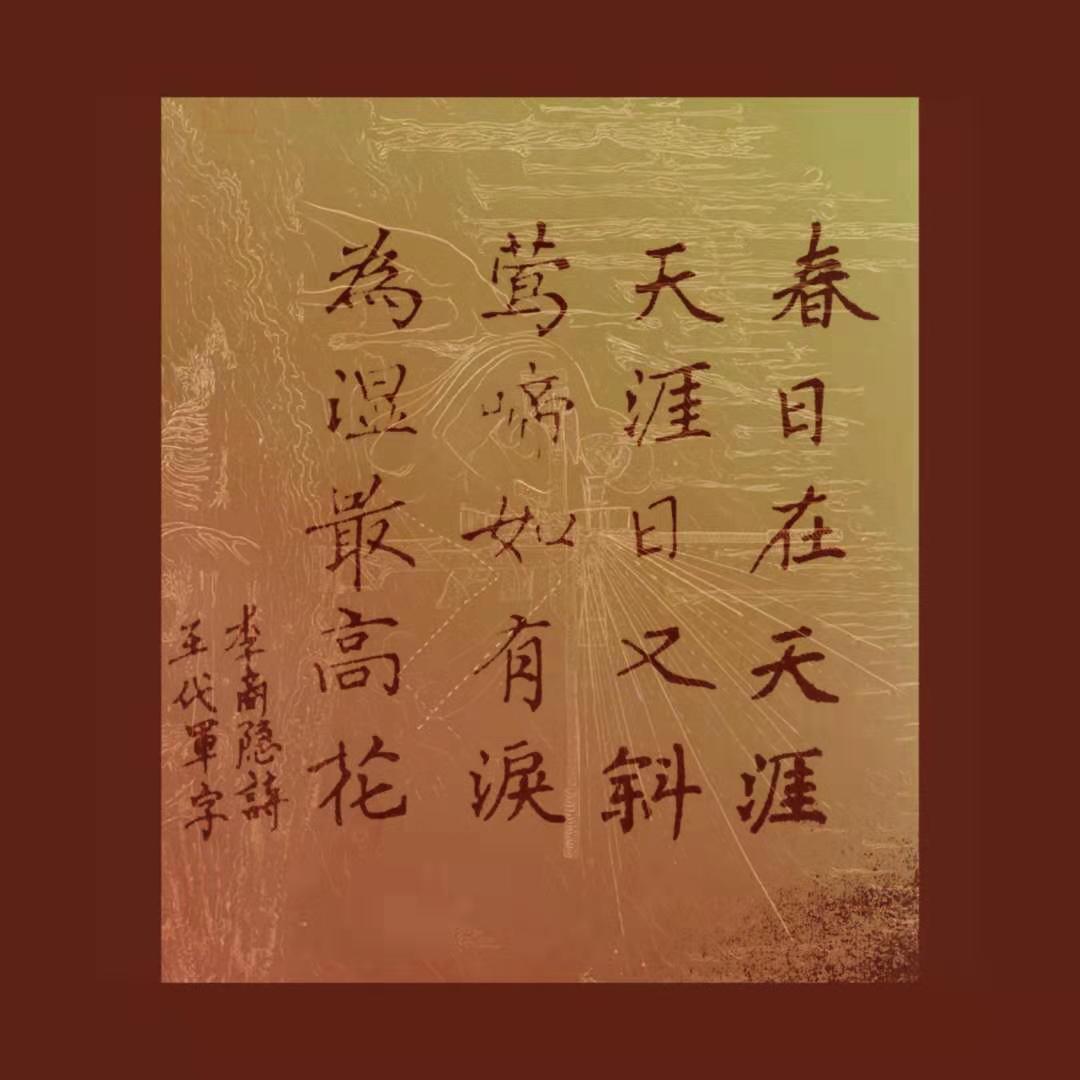 春日在天涯
天涯日又斜
莺啼如有淚
為湿最高花
李商隐詩
王代軍字